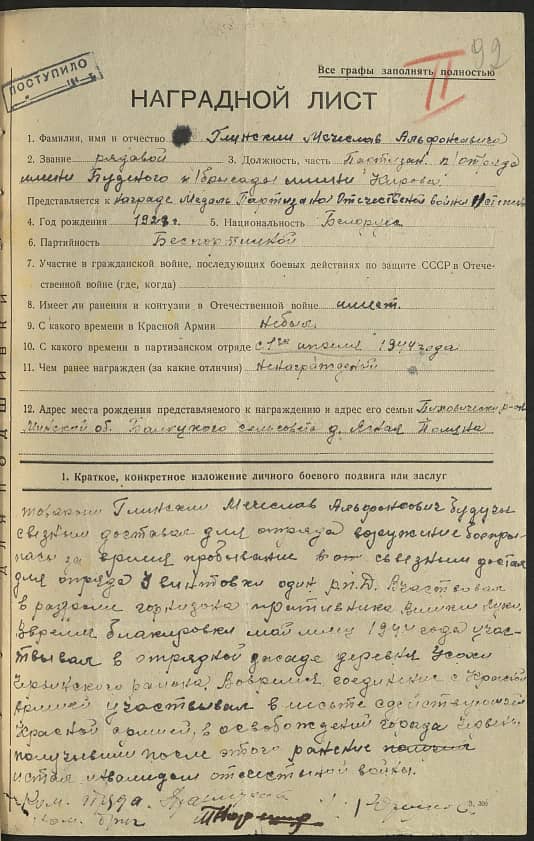 ПОСТУПИЛО
92
II
Все графы заполнять полностью
НАГРАДНОЙ ЛИСТ
1. Фамилия, имя и отчество Глински Мечеслав Альфонсавича
2. Звание рядовой 3. Должность, часть Партизан п/отряда
имени Будёного п/бригады имени Кирова
Представляется к награде Медаль Партизана Отечественой войны II степени
4. Год рождения 1928 г. 5. Национальность Белорус
6. Партийность Беспортийной
7. Участие в гражданской войне, последующих боевых действиях по защите СССР в Отече-
ственной войне (где, когда)
8. Имеет ли ранения и контузии в Отечественной войне имеет.
9. С какого времени в Красной Армии небыл
10. С какого времени в партизанском отряде с 1го апреля 1944 года
11. Чем ранее награжден (за какие отличия) ненагражден
12. Адрес места рождения представляемого к награждению и адрес его семьи
Минской об. сельсовета д. Ясная Поляна
1. Краткое, конкретное изложение личного боевого подвига или заслуг
товарищ Глински Мечеслав Альфонсович будучи
связным доставал для отряда воружиние боепри-
пасы за время пробывание в от. связным достал
для отряда 4 винтовки один Р.П.Д. Участвовал
в разгроме горнизона противника Велики Луки.
Время блакировки май месяц 1944 года учас-
твывал в отрядной засаде деревня
Червинского района. Вовремя соединение с Красной
армией участвывал в месьте с действующей
Красной армией, в освобождений города Червень
получивши после этого ранение
и стал инвалидом отечественой войны.
Ком. отряда.
Ком. бриг